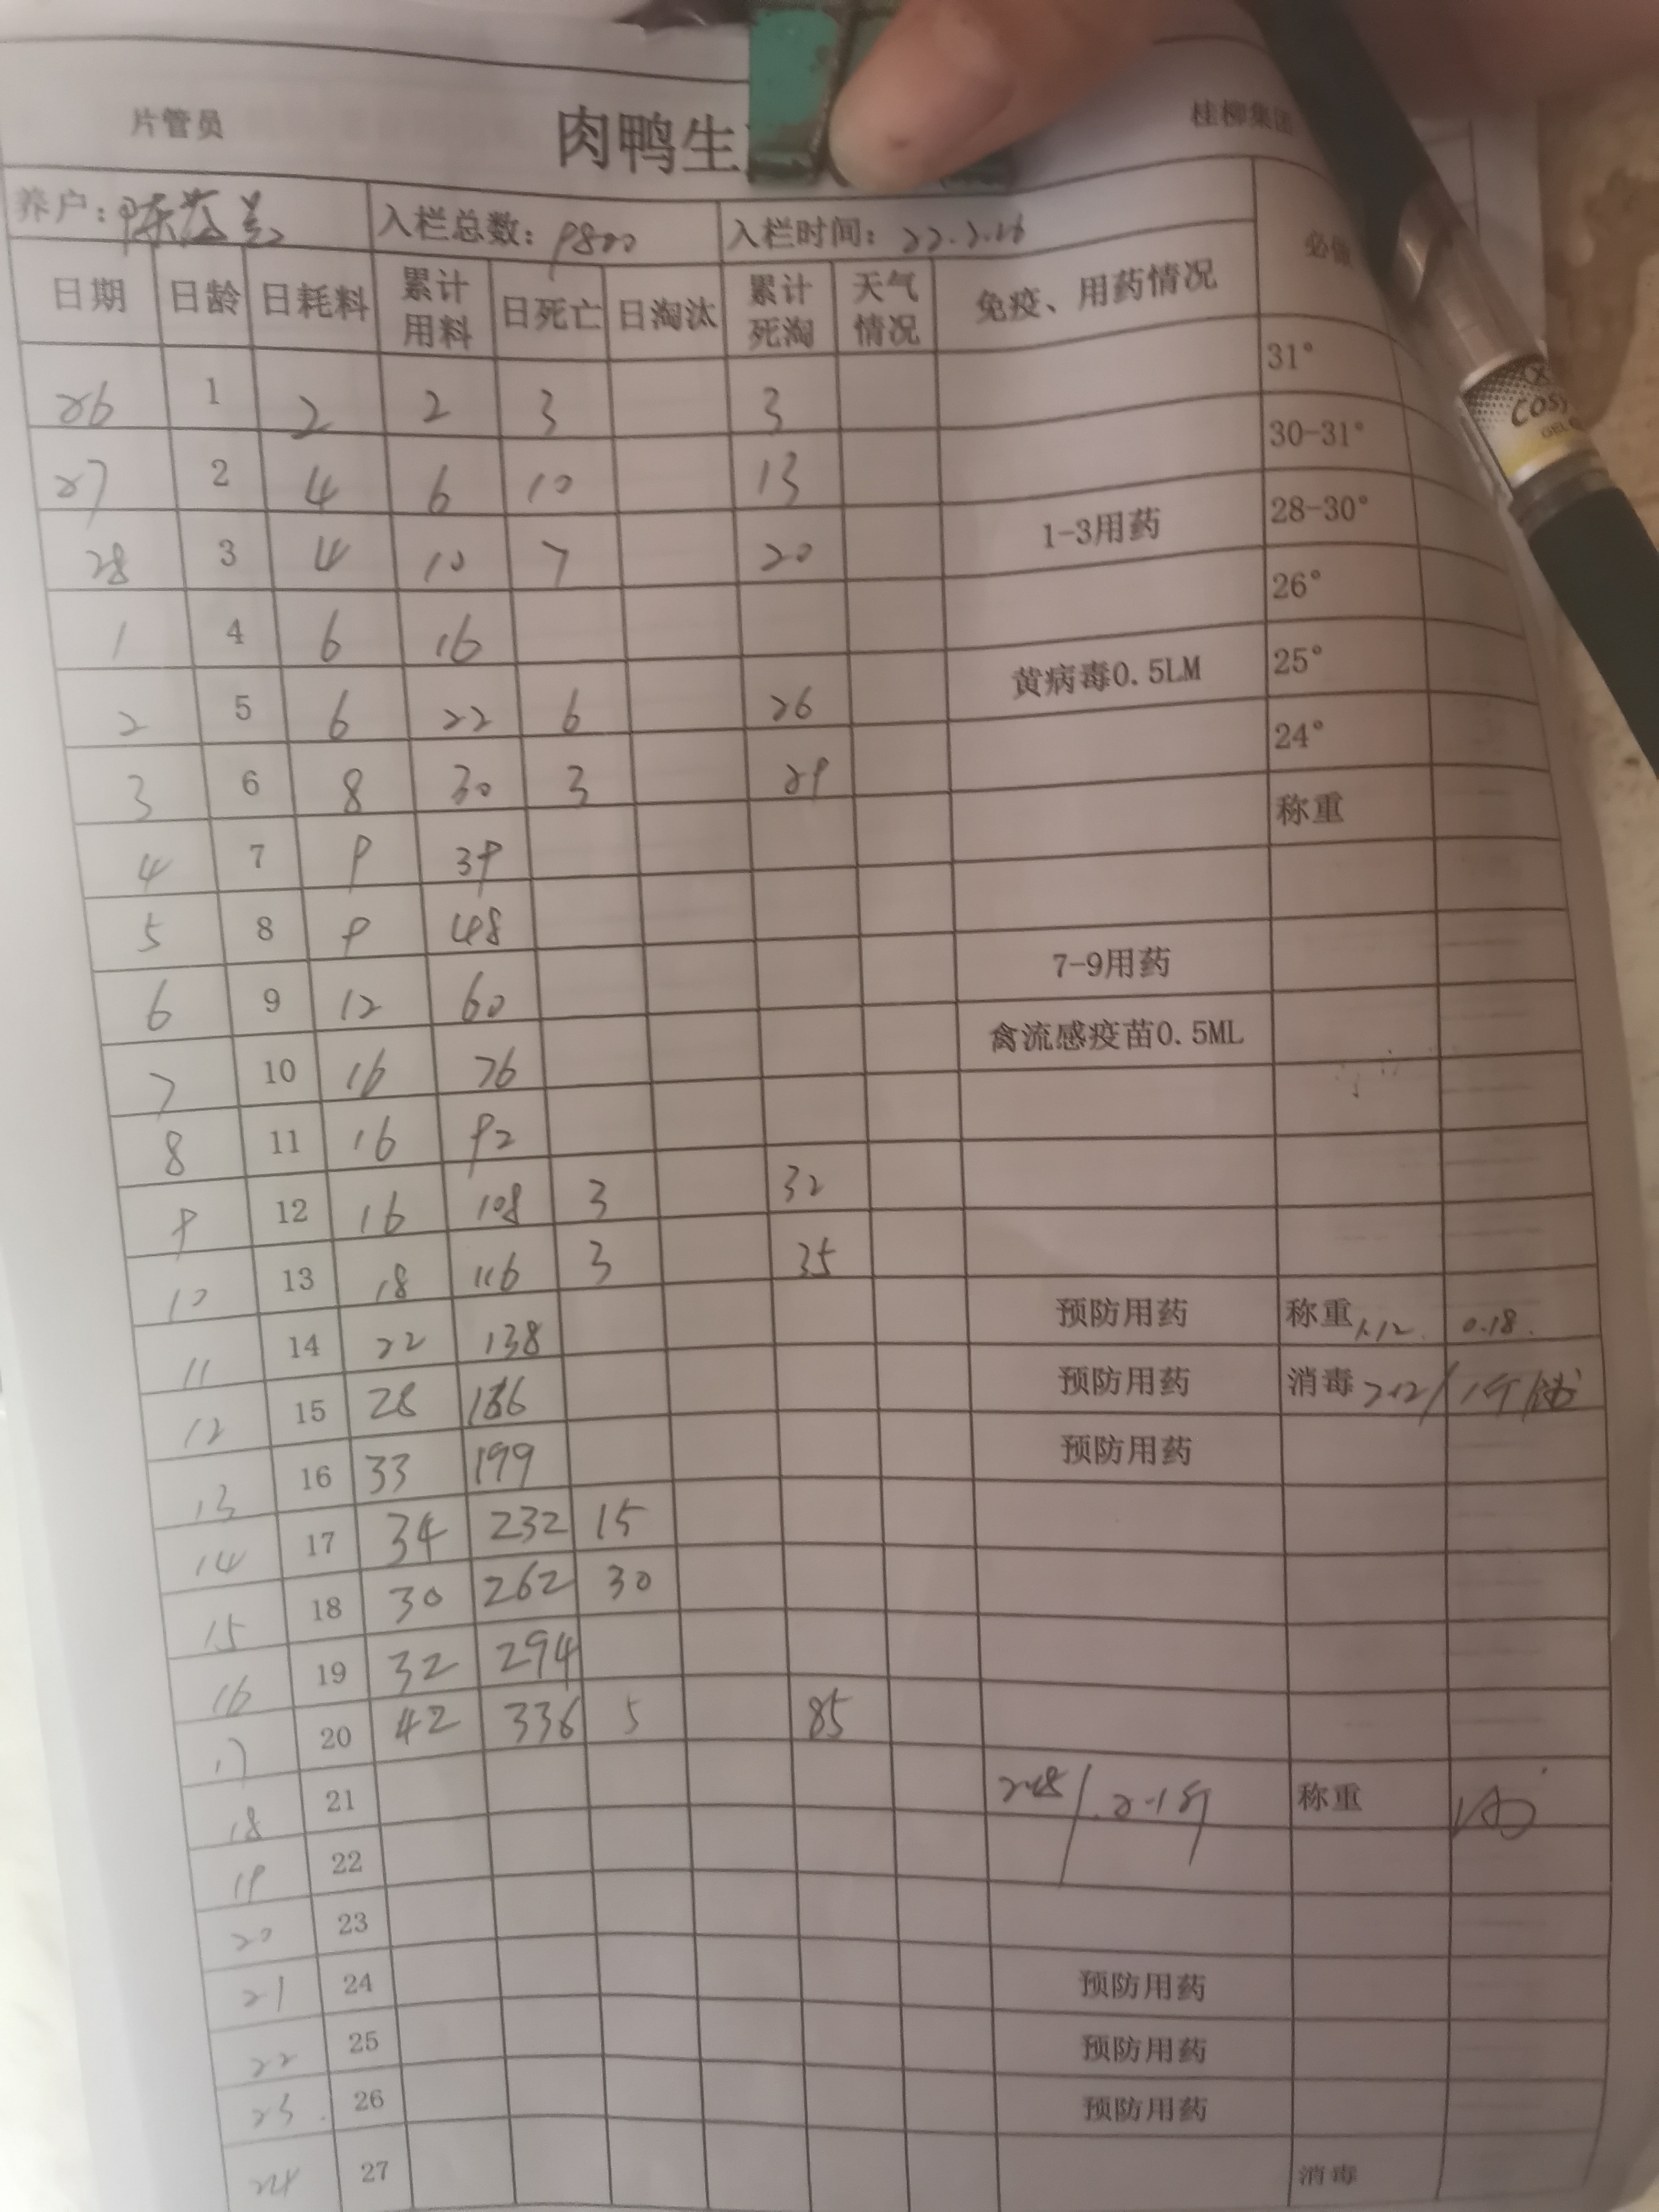 片管员 肉鸭生 桂柳集团
养户: 陈 入栏总数: 9800 入栏时间: 22.2.26
日期 日龄 日耗料 累计用料 日死亡 日淘汰 累计死淘 天气情况 免疫、用药情况 必做
26 1 2 2 3 3 31°
27 2 4 6 10 13 30-31°
28 3 4 10 7 20 1-3用药 28-30°
1 4 6 16 26°
2 5 6 22 6 26 黄病毒0.5LM 25°
3 6 8 30 3 29 24°
4 7 9 39 称重
5 8 9 48
6 9 12 60 7-9用药
7 10 16 76 禽流感疫苗0.5ML
8 11 16 92
9 12 16 108 3 32
10 13 18 116 3 35
11 14 22 138 预防用药 称重 0.18.
12 15 28 166 预防用药 消毒
13 16 33 199 预防用药
14 17 34 232 15
15 18 30 262 30
16 19 32 294
17 20 42 336 5 85
18 21 称重
19 22
20 23
21 24 预防用药
22 25 预防用药
23 26 预防用药
24 27 消毒
COSY
GEL